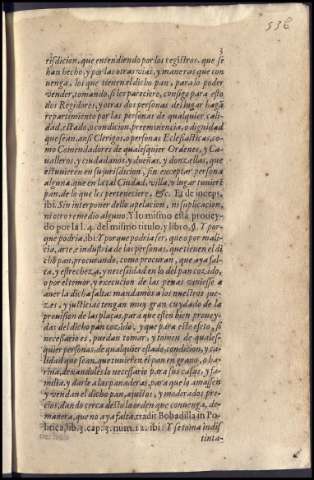 536
3
risdicion, que entendiendo por los registros, que se
han hecho, y por las otras vias, y maneras que con
uenga, los que tienen el dicho pan, para lo poder
vender, tomando, si les pareciere, consigo para esto
dos Regidores, y otras dos personas del lugar hagã
repartimiento por las personas de qualquier cali-
dad, estado, o condicion, preeminencia, o dignidad
que sean, ansi Clerigos, o personas Eclesiasticas, co-
mo Comendadores de qualesquier Ordenes, y Ca-
ualleros, y ciudadanos, y dueñas, y donzellas, que
estuuieren en su jurisdicion, sin exceptar persona
alguna que en la tal Ciudad, villa, o lugar tuuiere
pan, de lo que les perteneciere, &c. Et de inceps,
ibi. Sin interponer dello apelacion, ni suplicacion,
ni otro remedio alguno. Y lo mismo està proueydo
do por la l. 4. del mismo titulo, y libro, §. Y por-
que podria, ibi. Y porque podria ser, que o por mali-
cia, arte, e industria de las personas, que tienen el di
cho pan, procurando, como procuran, que aya fal-
ta, y estrecheza, y necessidad en lo del pan cozido,
o por el temor, y execucion de las penas viniesse a
auer la dicha falta: mandamos a los nuestros jue-
zes, y justicias tengan muy gran cuydado de la
prouision de las plaças, para que esten bien prouey-
das del dicho pan cozido, y que para este efeto, si
necessario es, puedan tomar, y tomen de quales-
quier personas, de qualquier estado, condicion, y ca-
lidad que sean, que tuuieren el pan en grano, o ha-
rina, dexandoles lo necessario para sus casas, y fa-
milia, y darlo a las panaderas, para que lo amassen
y vendan el dicho pan, a justos, y moderados pre-
cios, dando cerca desto la orden que conuenga, de
manera, que no aya falta. tradit Bobadilla in Po-
litica, lib. 3. cap. 3. num. 12. ibi: Y se toma indis
tinta-